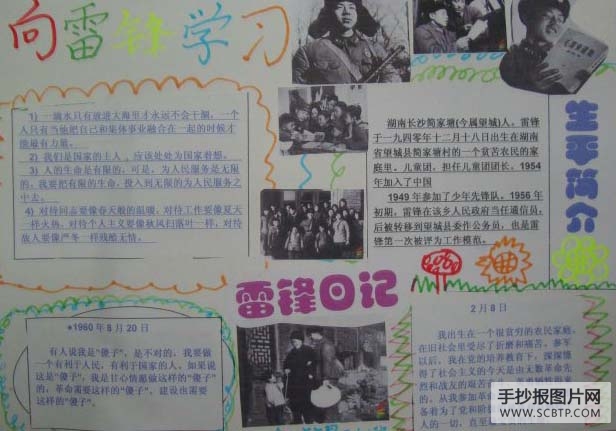 向雷锋学习
1）一滴水只有放进大海里才永远不会干涸，一个
人只有当他把自己和集体事业融合在一起的时候才
能最有力量。
2）我们是国家的主人，应该处处为国家着想。
3）人的生命是有限的，可是，为人民服务是无限
的，我要把有限的生命，投入到无限的为人民服务之
中去。
4）对待同志要像春天般的温暖，对待工作要像夏天
一样火热，对待个人主义要像秋风扫落叶一样，对待
敌人要像严冬一样残酷无情。
湖南长沙简家塘(今属望城)人。雷锋
于一九四零年十二月十八日出生在湖南
省望城县简家塘村的一个贫苦农民的家
庭里。儿童团，担任儿童团团长。1954
年加入了中国
1949 年参加了少年先锋队。1956 年
初期，雷锋在该乡人民政府当任通信员，
后被转移到望城县委作公务员，也是雷
锋第一次被评为工作模范。
生平简介
雷锋日记
●1960 年 8 月 20 日
有人说我是“傻子”，是不对的，我要做
一个有利于人民，有利于国家的人。如果说
这是“傻子”，我是甘心情愿做这样的“傻子”
的，革命需要这样的“傻子”，建设也需要
这样的“傻子”。
2 月 8 日
我出生在一个很贫穷的农民家庭，
在旧社会里受尽了折磨和痛苦。参军
以后，我在党的培养教育下，深深懂
得了社会主义的今天是由无数革命先
烈和战友的艰苦
的，从我参加革
备着为了党和阶
人的一切，直至
手抄报图片网
WWW.SCBTP.COM